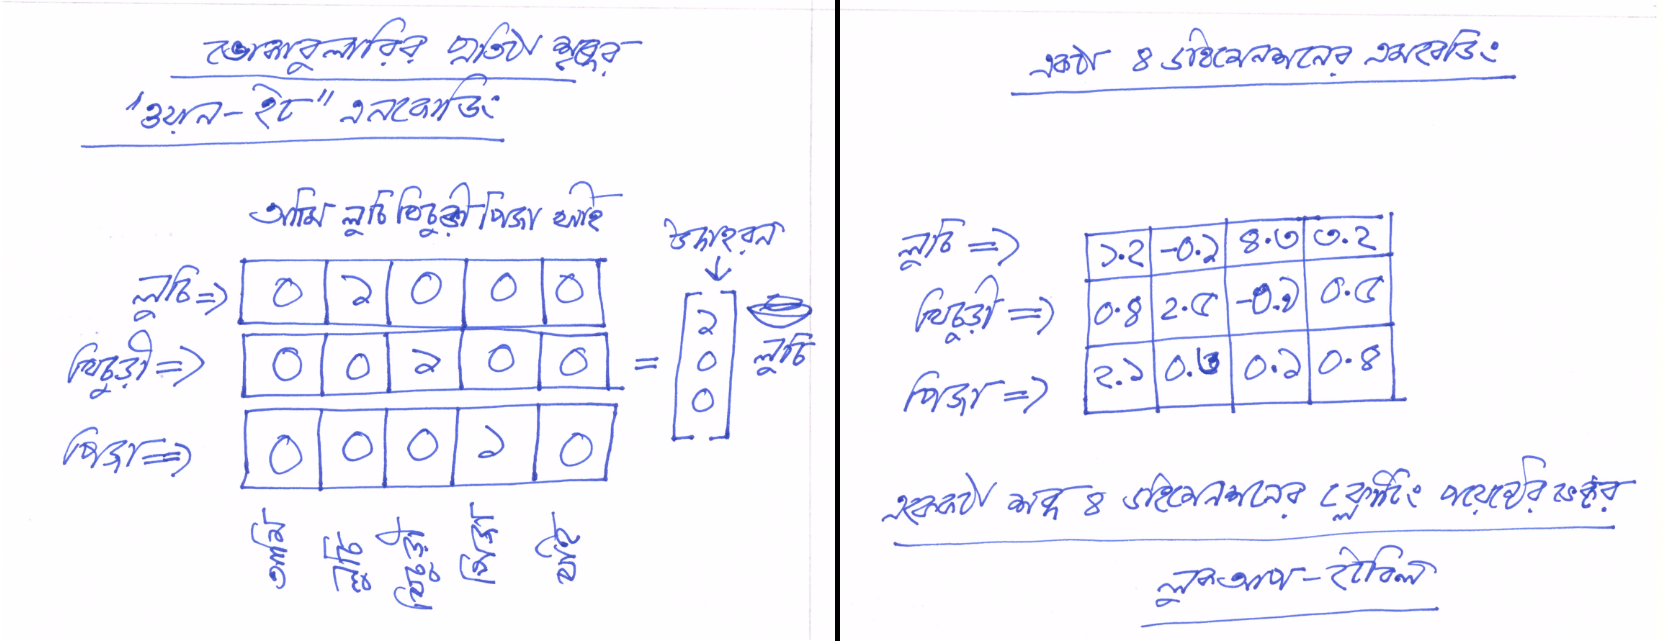 ভোকাবুলারির প্রতিটা শব্দের
"ওয়ান-হট" এনকোডিং
আমি লুচি খিচুড়ী পিজা খাই
উদাহরন
লুচি => ০ ১ ০ ০ ০
খিচুড়ী => ০ ০ ১ ০ ০
পিজা => ০ ০ ০ ১ ০
=
১
০
০
লুচি
আমি লুচি খিচুড়ী পিজা খাই
একটা ৪ ডাইমেনশনের এমবেডিং
লুচি => ১.২ -০.১ ৪.৩ ৩.২
খিচুড়ী => ০.৪ ২.৫ -০.১ ০.৫
পিজা => ২.১ ০.৩ ০.১ ০.৪
একেকটা শব্দ ৪ ডাইমেনশনের ফ্লোটিং পয়েন্টের ভেক্টর
লুকআপ-টেবিল